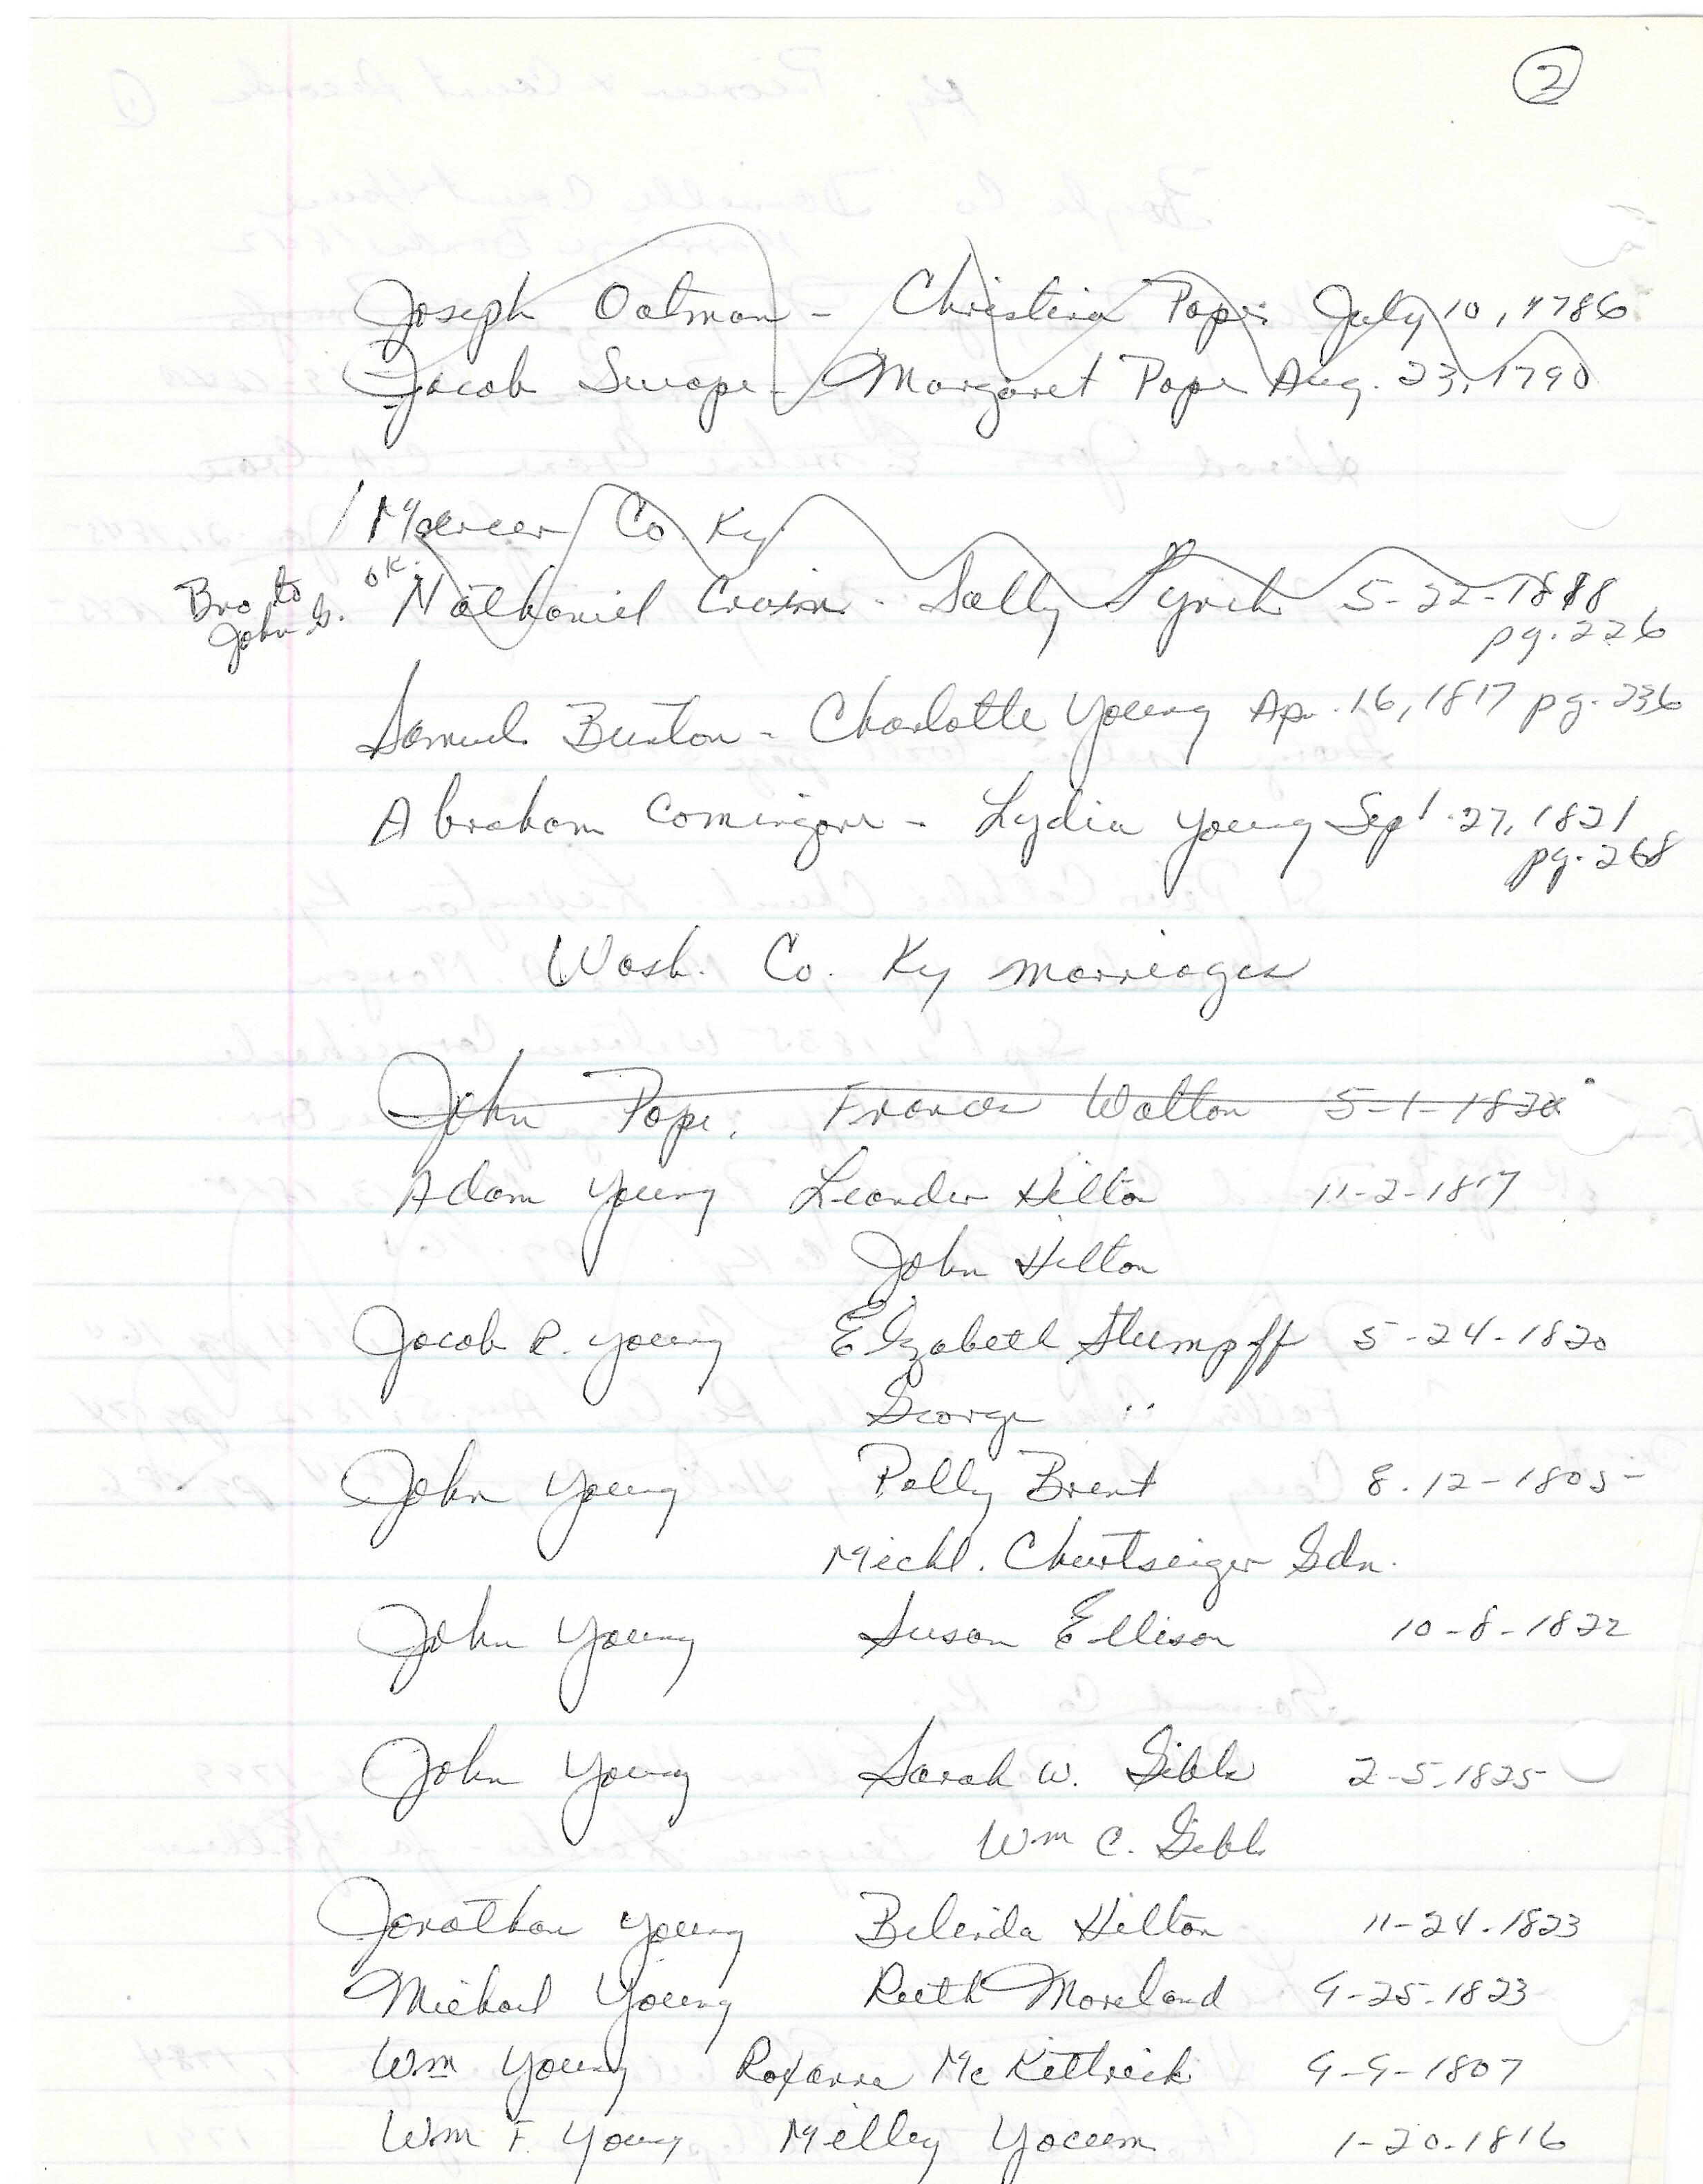 2
Joseph Oatman - Christina Pope July 10, 1786
Jacob Swope - Margaret Pope Aug. 23, 1790
Mercer Co Ky
OK.
Bro to
John G.
Nathaniel - Sally 5-22-1818
pg. 226
Samuel Burton - Charlotte Young Ap. 16, 1817 pg. 236
Abraham Comingore - Lydia Young Sept. 27, 1821
pg. 268
Wash. Co. Ky marriages
John Pope. Frances Walton 5-1-1820
Adam Young Leander Hilton 11-2-1817
John Hilton
Jacob R. Young Elzabeth Stumpff 5-24-1820
George "
John Young Polly Brent 8.12-1805-
Michl. Gdn.
John Young Susan Ellison 10-8-1822
John Young Sarah W. Gibbs 2-5-1825
Wm C. Gibbs
Jonathan Young Belinda Hilton 11-24-1823
Michael Young Ruth Moreland 9-25-1823
Wm Young Roxanna McKittrick 9-9-1807
Wm F. Young Milley Yocum 1-20-1816